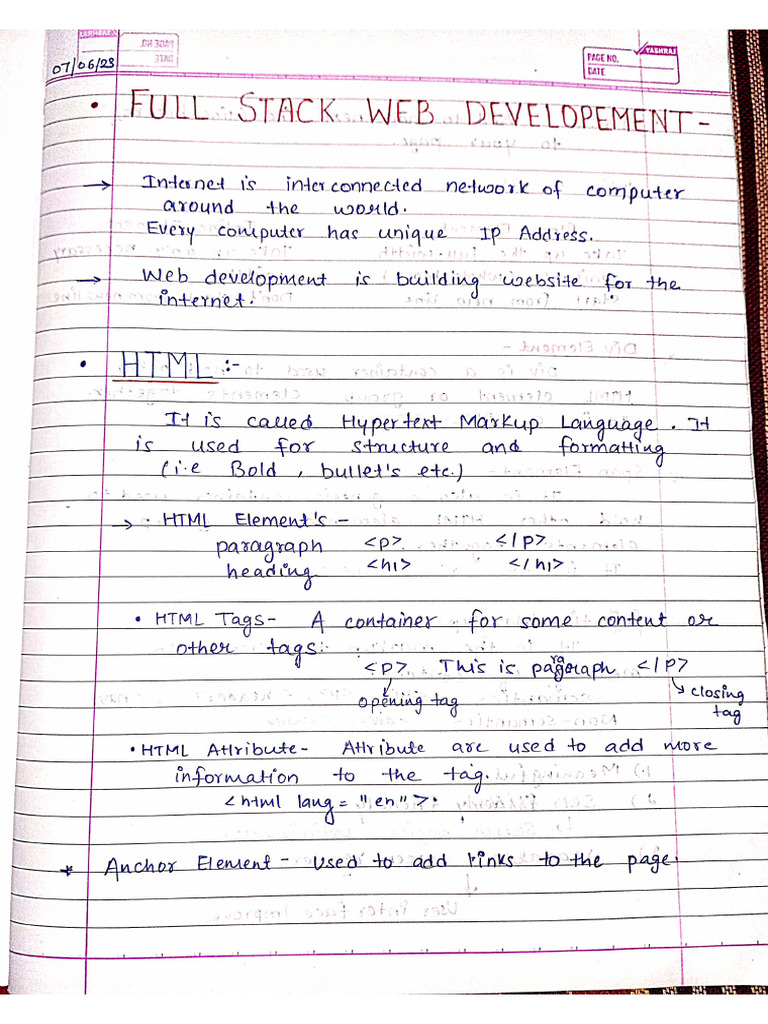 07/06/23
YASHRAJ
PAGE NO.
DATE
• FULL STACK WEB DEVELOPEMENT -
→ Internet is interconnected network of computer
around the world.
Every computer has unique IP Address.
→ Web development is building website for the
internet.
• HTML :-
It is called Hypertext Markup Language. It
is used for structure and formatting
(i.e Bold, bullet's etc.)
→ HTML Element's -
paragraph <p> </p>
heading <h1> </h1>
• HTML Tags - A container for some content or
other tags.
<p> This is paragraph </p>
opening tag
closing
tag
• HTML Attribute - Attribute are used to add more
information to the tag.
<html lang = "en">.
* Anchor Element - Used to add links to the page.